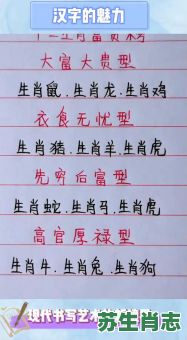 汉字的魅力
十二生肖富贵
大富大贵型
生肖鼠.生肖龙.生肖鸡
衣食无忧型
生肖猪.生肖羊.生肖虎
先穷后富型
生肖蛇.生肖马.生肖虎
高官厚禄型
生肖牛.生肖兔.生肖狗
现代书写艺术
苏生肖志